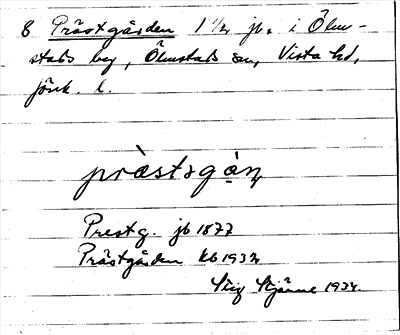 8 Prästgården 1 1/2 jb. i Ölm-
stads by, Ölmstads sn, Vista hd,
Jönk. l.
prästsgàṇ
Prestg. jb 1877
Prästgården kb 1932
Stig Stjärne 1934